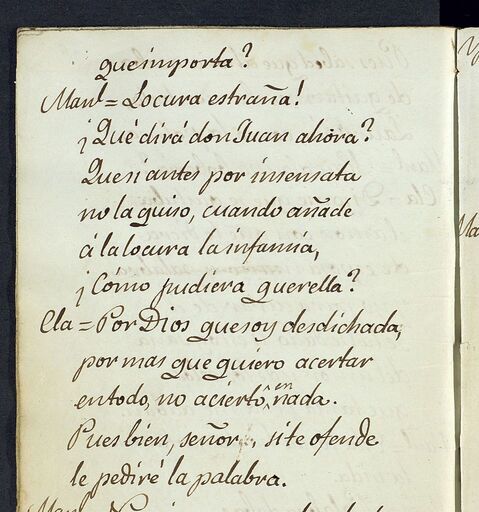 que importa?
Manl = Locura estraña!
¡Qué dirá don Juan ahora?
Que si antes por insensata
no la quiso, cuando añade
á la locura la infamia,
¡Cómo pudiera querella?
Cla = Por Dios que soy desdichada,
por mas que quiero acertar
en todo, no acierto en nada.
Pues bien, señor, si te ofende
le pediré la palabra.
Manl